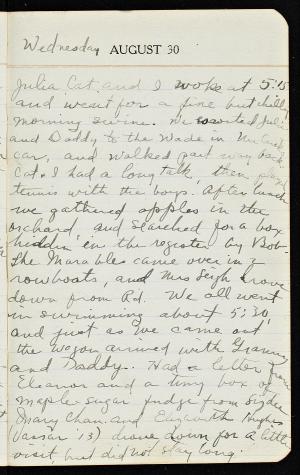 Wednesday AUGUST 30
Julia Cat, and I woke at 5:15
and went for a fine but chilly
morning swim. We rowed Julia
and Daddy to the Wade in
car, and walked part way back
Cat & I had a long talk, then played
tennis with the boys. After lunch
we gathered apples in the
orchard, and searched for a box
hidden in the register by Bob.
The Marables came over in 2
rowboats, and Mrs Leigh drove
down from Rd. We all went
in swimming about 5:30,
and just as we came out
the wagon arrived with Granny
and Daddy. Had a letter from
Eleanor and a tiny box of
maple-sugar fudge from
Mary Chan. and Edwith Hughes
(Vassar '13) drove down for a little
visit, but did not stay long.